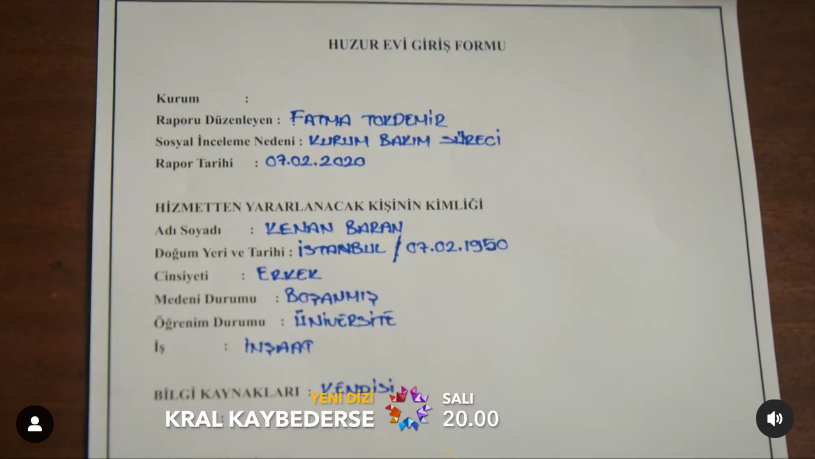 HUZUR EVİ GİRİŞ FORMU
Kurum :
Raporu Düzenleyen : FATMA TOKDEMİR
Sosyal İnceleme Nedeni : KURUM BAKIM SÜRECİ
Rapor Tarihi : 07.02.2020
HİZMETTEN YARARLANACAK KİŞİNİN KİMLİĞİ
Adı Soyadı : KENAN BARAN
Doğum Yeri ve Tarihi : İSTANBUL / 07.02.1950
Cinsiyeti : ERKEK
Medeni Durumu : BOŞANMIŞ
Öğrenim Durumu : ÜNİVERSİTE
İş : İNŞAAT
BİLGİ KAYNAKLARI : KENDİSİ
YENİ DİZİ
KRAL KAYBEDERSE
SALI
20.00